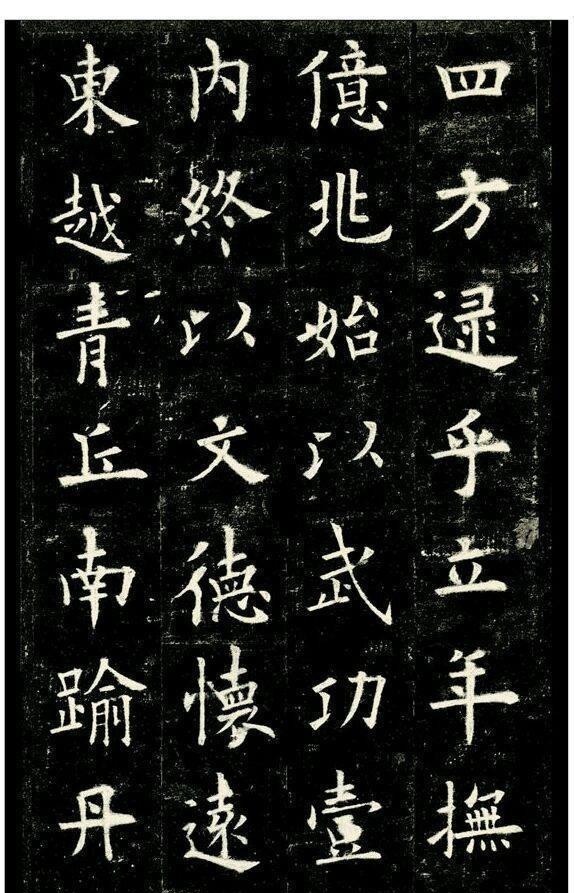 四方逮乎立年撫
億兆始以武功壹
內終以文德懷遠
東越青丘南踰丹